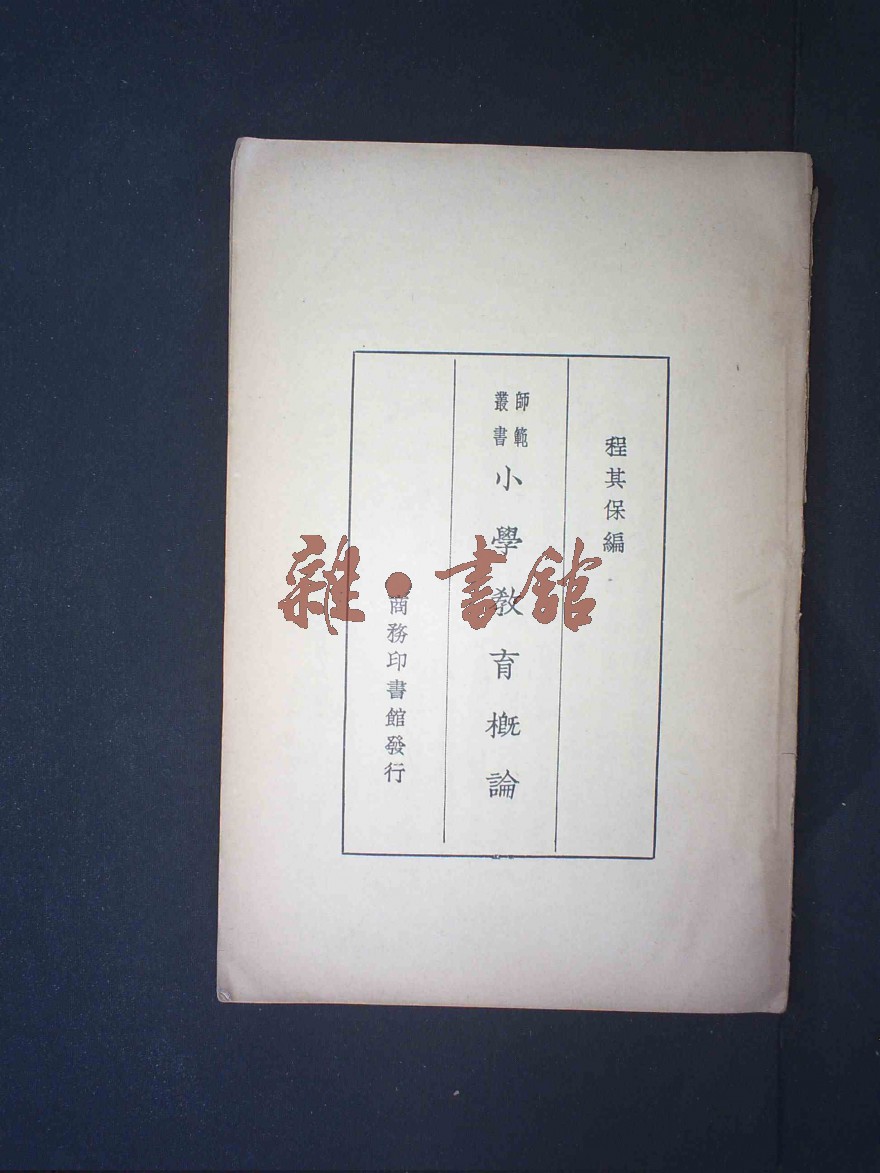 程其保編
師範
叢書
小學敎育概論
商務印書館發行
雜·書館